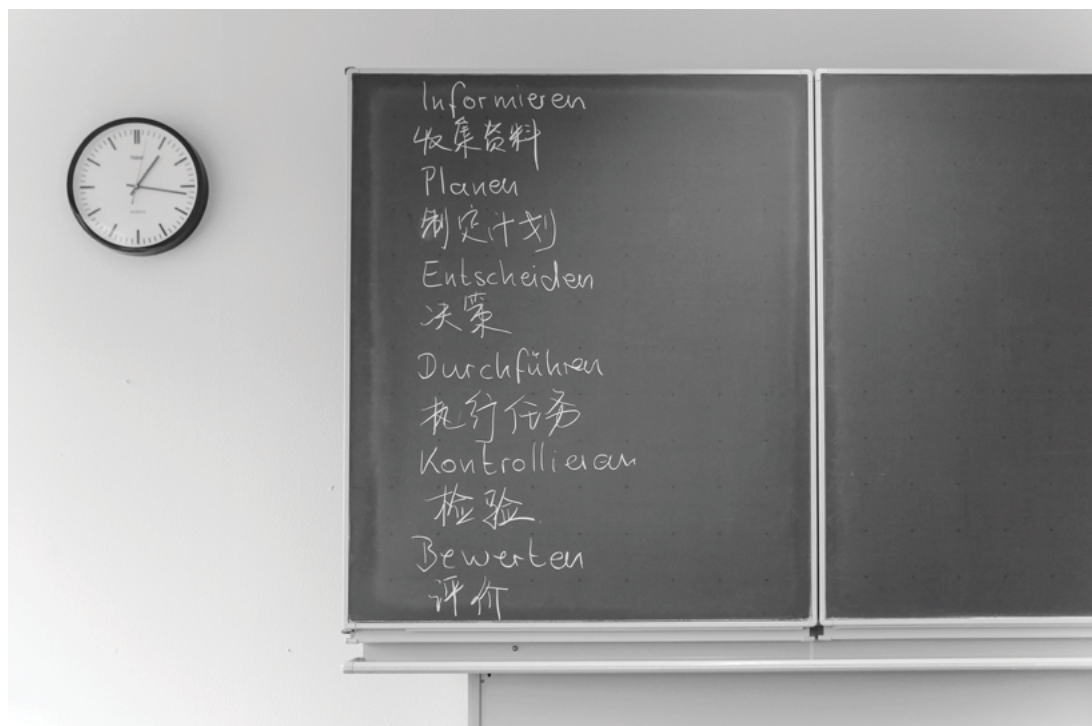 Informieren
收集资料
Planen
制定计划
Entscheiden
决策
Durchführen
执行任务
Kontrollieren
检验
Bewerten
评价